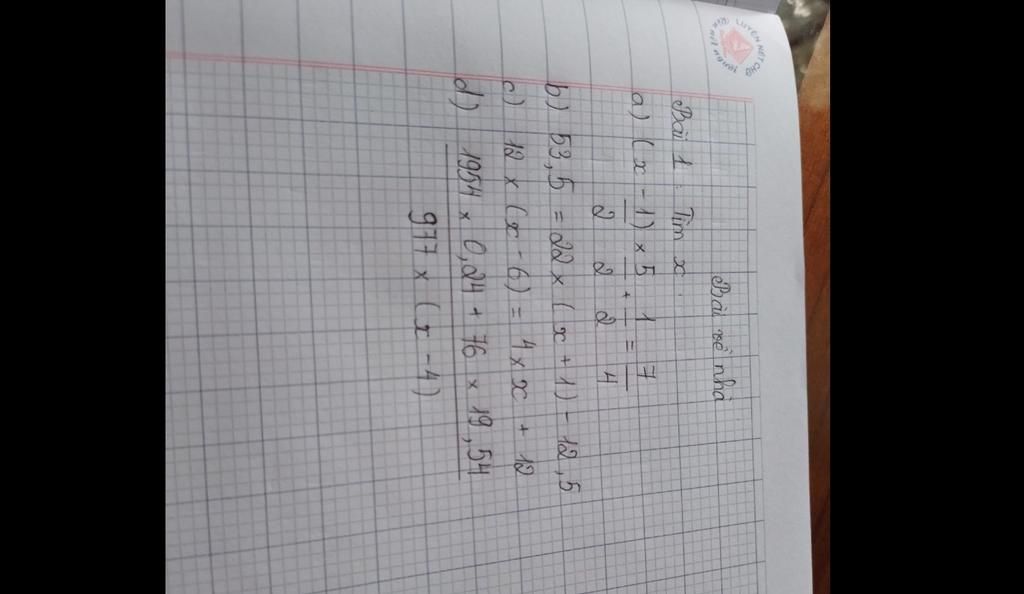 LUYỆN NÉT CHỮ
Bài về nhà
Bài 1: Tìm x
a) (x - 1/2) × 5/2 + 1/2 = 7/4
b) 53,5 = 22 × (x + 1) - 12,5
c) 12 × (x - 6) = 4 × x + 12
d) 1954 × 0,24 + 76 × 19,54
977 × (x - 4)